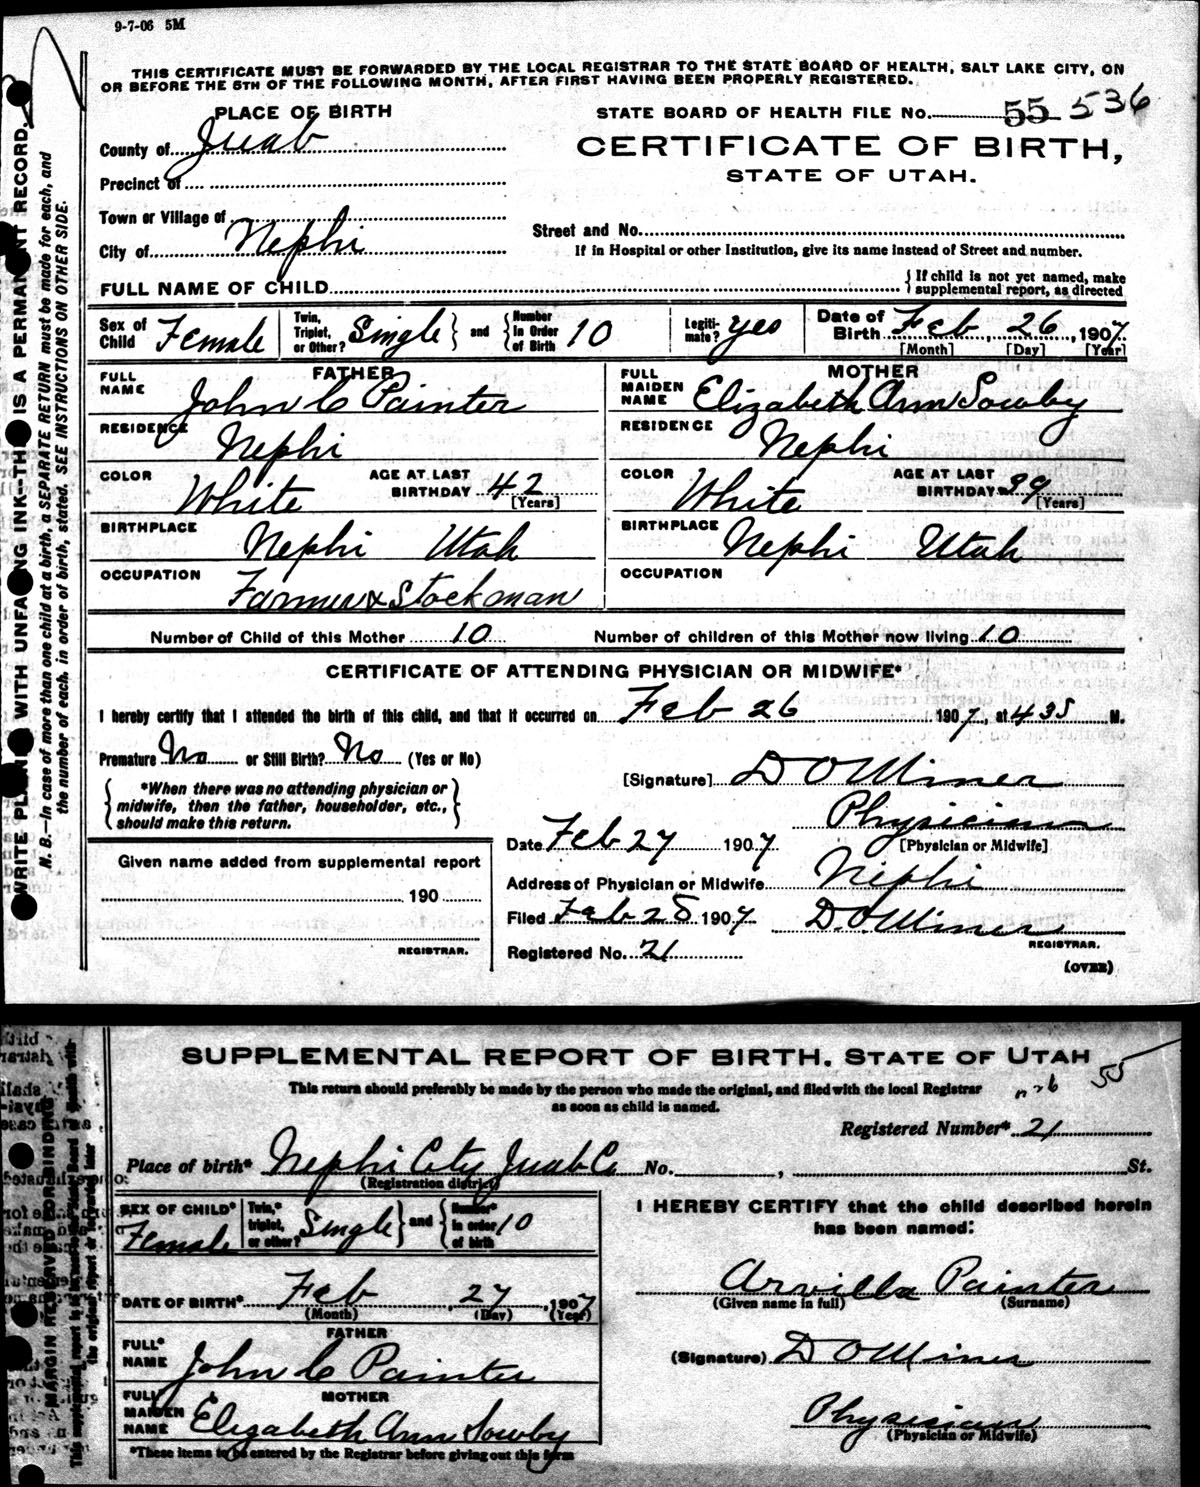 9-7-06 5M
THIS CERTIFICATE MUST BE FORWARDED BY THE LOCAL REGISTRAR TO THE STATE BOARD OF HEALTH, SALT LAKE CITY, ON
OR BEFORE THE 5TH OF THE FOLLOWING MONTH, AFTER FIRST HAVING BEEN PROPERLY REGISTERED.
PLACE OF BIRTH
County of Juab
Precinct of
Town or Village of
City of Nephi
STATE BOARD OF HEALTH FILE No. 55 536
CERTIFICATE OF BIRTH,
STATE OF UTAH.
Street and No.
If in Hospital or other Institution, give its name instead of Street and number.
FULL NAME OF CHILD
{ If child is not yet named, make
supplemental report, as directed
Sex of Child Female
Twin, Triplet, or Other? Single } and { Number In Order of Birth 10
Legiti-mate? yes
Date of Birth Feb 26, 1907
[Month] [Day] [Year]
FATHER
FULL NAME John C Painter
RESIDENCE Nephi
COLOR White AGE AT LAST BIRTHDAY 42 [Years]
BIRTHPLACE Nephi Utah
OCCUPATION Farmer & Stockman
MOTHER
FULL MAIDEN NAME Elizabeth Ann Sowby
RESIDENCE Nephi
COLOR White AGE AT LAST BIRTHDAY 39 [Years]
BIRTHPLACE Nephi Utah
OCCUPATION
Number of Child of this Mother 10 Number of children of this Mother now living 10
CERTIFICATE OF ATTENDING PHYSICIAN OR MIDWIFE*
I hereby certify that I attended the birth of this child, and that it occurred on Feb 26 1907, at 435 M.
Premature No or Still Birth? No (Yes or No)
{ *When there was no attending physician or
midwife, then the father, householder, etc., }
should make this return.
[Signature] D O Miner
Physician
[Physician or Midwife]
Date Feb 27 1907
Address of Physician or Midwife Nephi
Filed Feb 28 1907 D. O. Miner
REGISTRAR.
Registered No. 21
(OVER)
Given name added from supplemental report
190
REGISTRAR.
WRITE PLAINLY WITH UNFADING INK--THIS IS A PERMANENT RECORD.
N. B.—In case of more than one child at a birth, a SEPARATE RETURN must be made for each, and
the number of each, in order of birth, stated. SEE INSTRUCTIONS ON OTHER SIDE.
SUPPLEMENTAL REPORT OF BIRTH. STATE OF UTAH
This return should preferably be made by the person who made the original, and filed with the local Registrar
as soon as child is named.
55
Registered Number* 21
Place of birth* Nephi City Juab Co No. , St.
(Registration district)
SEX OF CHILD* Female
Twin,* triplet, or other? Single } and { Number* in order of birth 10
DATE OF BIRTH* Feb 27, 1907
(Month) (Day) (Year)
FATHER
FULL* NAME John C Painter
MOTHER
FULL MAIDEN NAME Elizabeth Ann Sowby
*These items to be entered by the Registrar before giving out this form
I HEREBY CERTIFY that the child described herein
has been named:
Arvilla Painter
(Given name in full) (Surname)
(Signature) D O Miner
Physician
(Physician or Midwife)
MARGIN RESERVED FOR BINDING